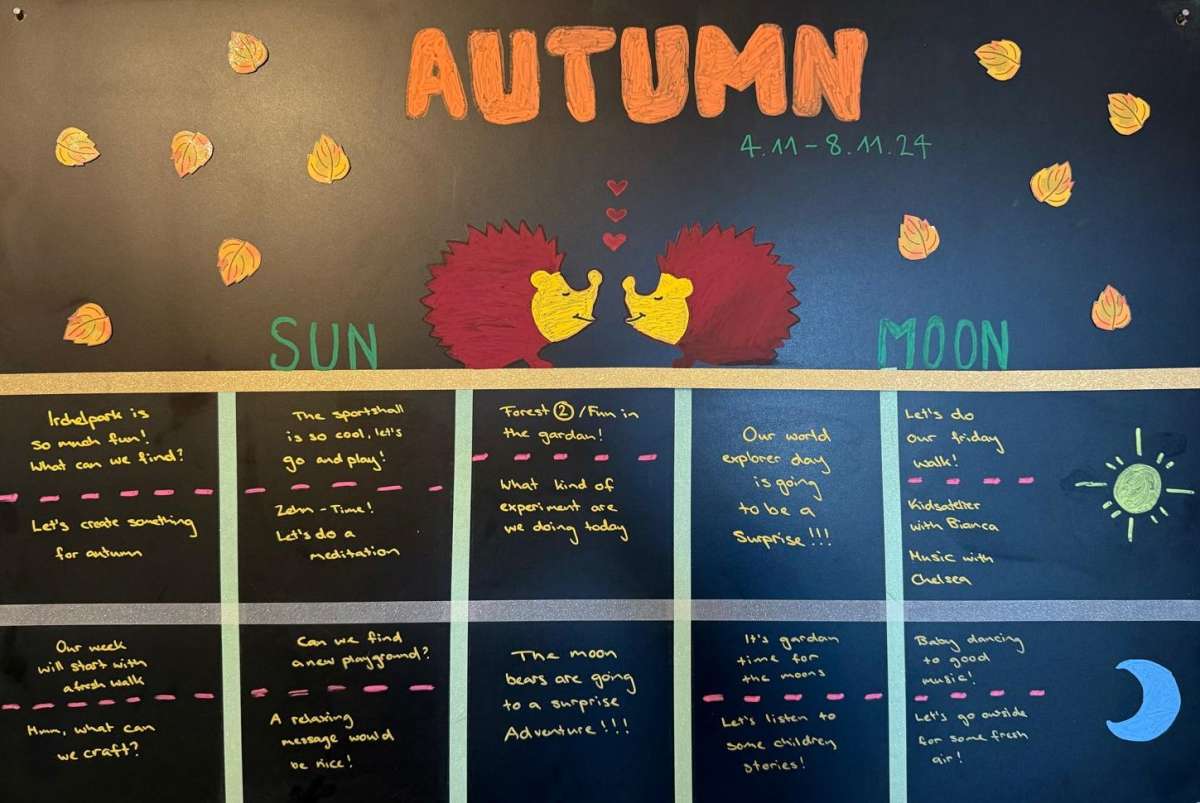 AUTUMN
4.11 - 8.11.24
SUN
MOON
Irchelpark is
so much fun!
What can we find?
Let's create something
for autumn
The sportshall
is so cool, let's
go and play!
Zehn - Time!
Let's do a
meditation
Forest ② / Fun in
the gardan!
What kind of
experiment are
we doing today
Our world
explorer day
is going
to be a
Surprise!!!
Let's do
our friday
walk!
Kidsatelier
with Bianca
Music with
Chelsea
Our week
will start with
a fresh walk
Hmm, what can
we craft?
Can we find
a new playground?
A relaxing
message would
be nice!
The moon
bears are going
to a surprise
Adventure!!!
It's gardan
time for
the moons
Let's listen to
some children
stories!
Baby dancing
to good
music!
Let's go outside
for some fresh
air!